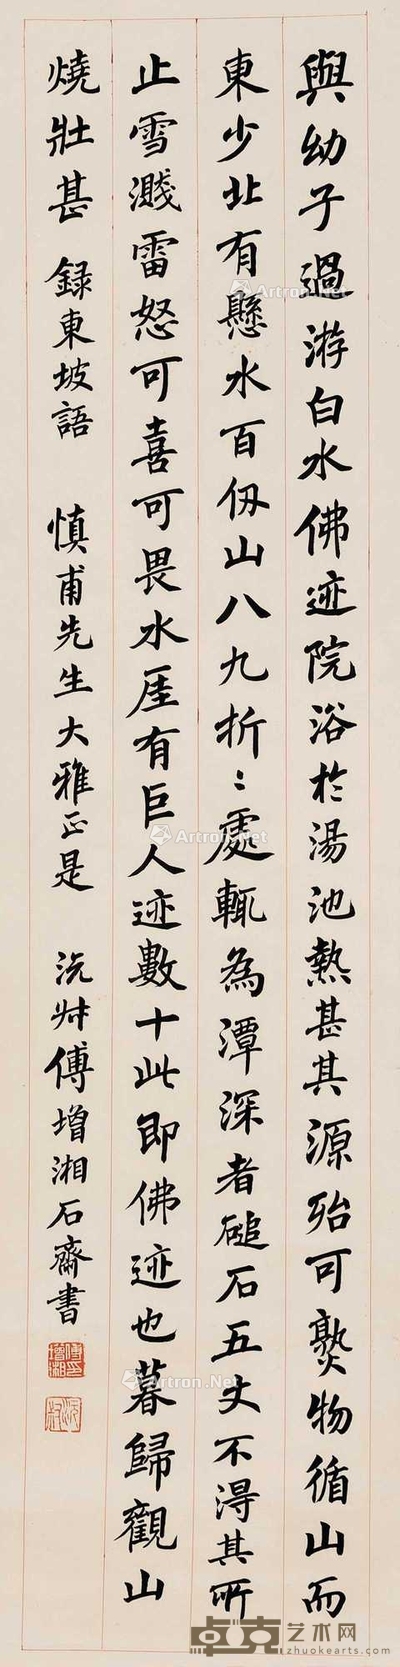 與幼子過游白水佛迹院浴於湯池熱甚其源殆可熟物循山而
東少北有懸水百仞山八九折：處輒為潭深者磓石五丈不得其所
止雪濺雷怒可喜可畏水厓有巨人迹數十此即佛迹也暮歸觀山
燒壯甚 録東坡語 慎甫先生大雅正是 沅尗傅增湘石齋書
傅印增湘
沅叔
Artron.Net
Artron.Net
Artron.Net
Artron.Net
Artron.Net
Artron.Net
卓克艺术网
zhuokearts.com